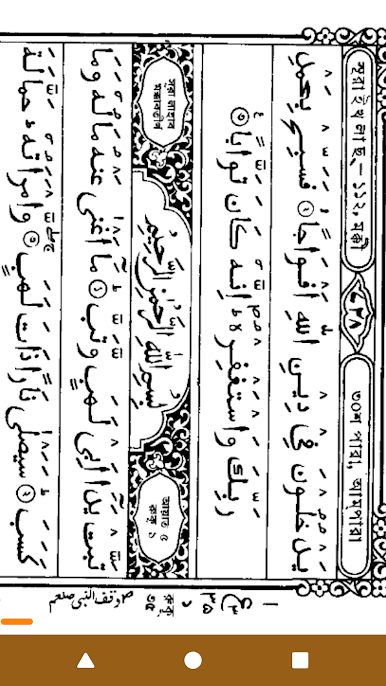 সূরা ইখলাছ,-১১২, মক্কী
৩০শ পারা, আমপারা
يَدْخُلُوْنَ فِیْ دِیْنِ اللّٰهِ اَفْوَاجًا ۙ فَسَبِّحْ بِحَمْدِ
رَبِّكَ وَاسْتَغْفِرْهُ ؕ اِنَّهٗ كَانَ تَوَّابًا
সূরা লাহাব
মক্কাবতীর্ণ
بِسْمِ اللّٰهِ الرَّحْمٰنِ الرَّحِیْمِ
আয়াত ৫
রুকু ১
تَبَّتْ یَدَاۤ اَبِیْ لَهَبٍ وَّتَبَّ ؕ مَاۤ اَغْنٰی عَنْهُ مَالُهٗ وَمَا
كَسَبَ ؕ سَیَصْلٰی نَارًا ذَاتَ لَهَبٍ ۚ وَّامْرَاَتُهٗ ؕ حَمَّالَةَ
وقف النبی صلعم